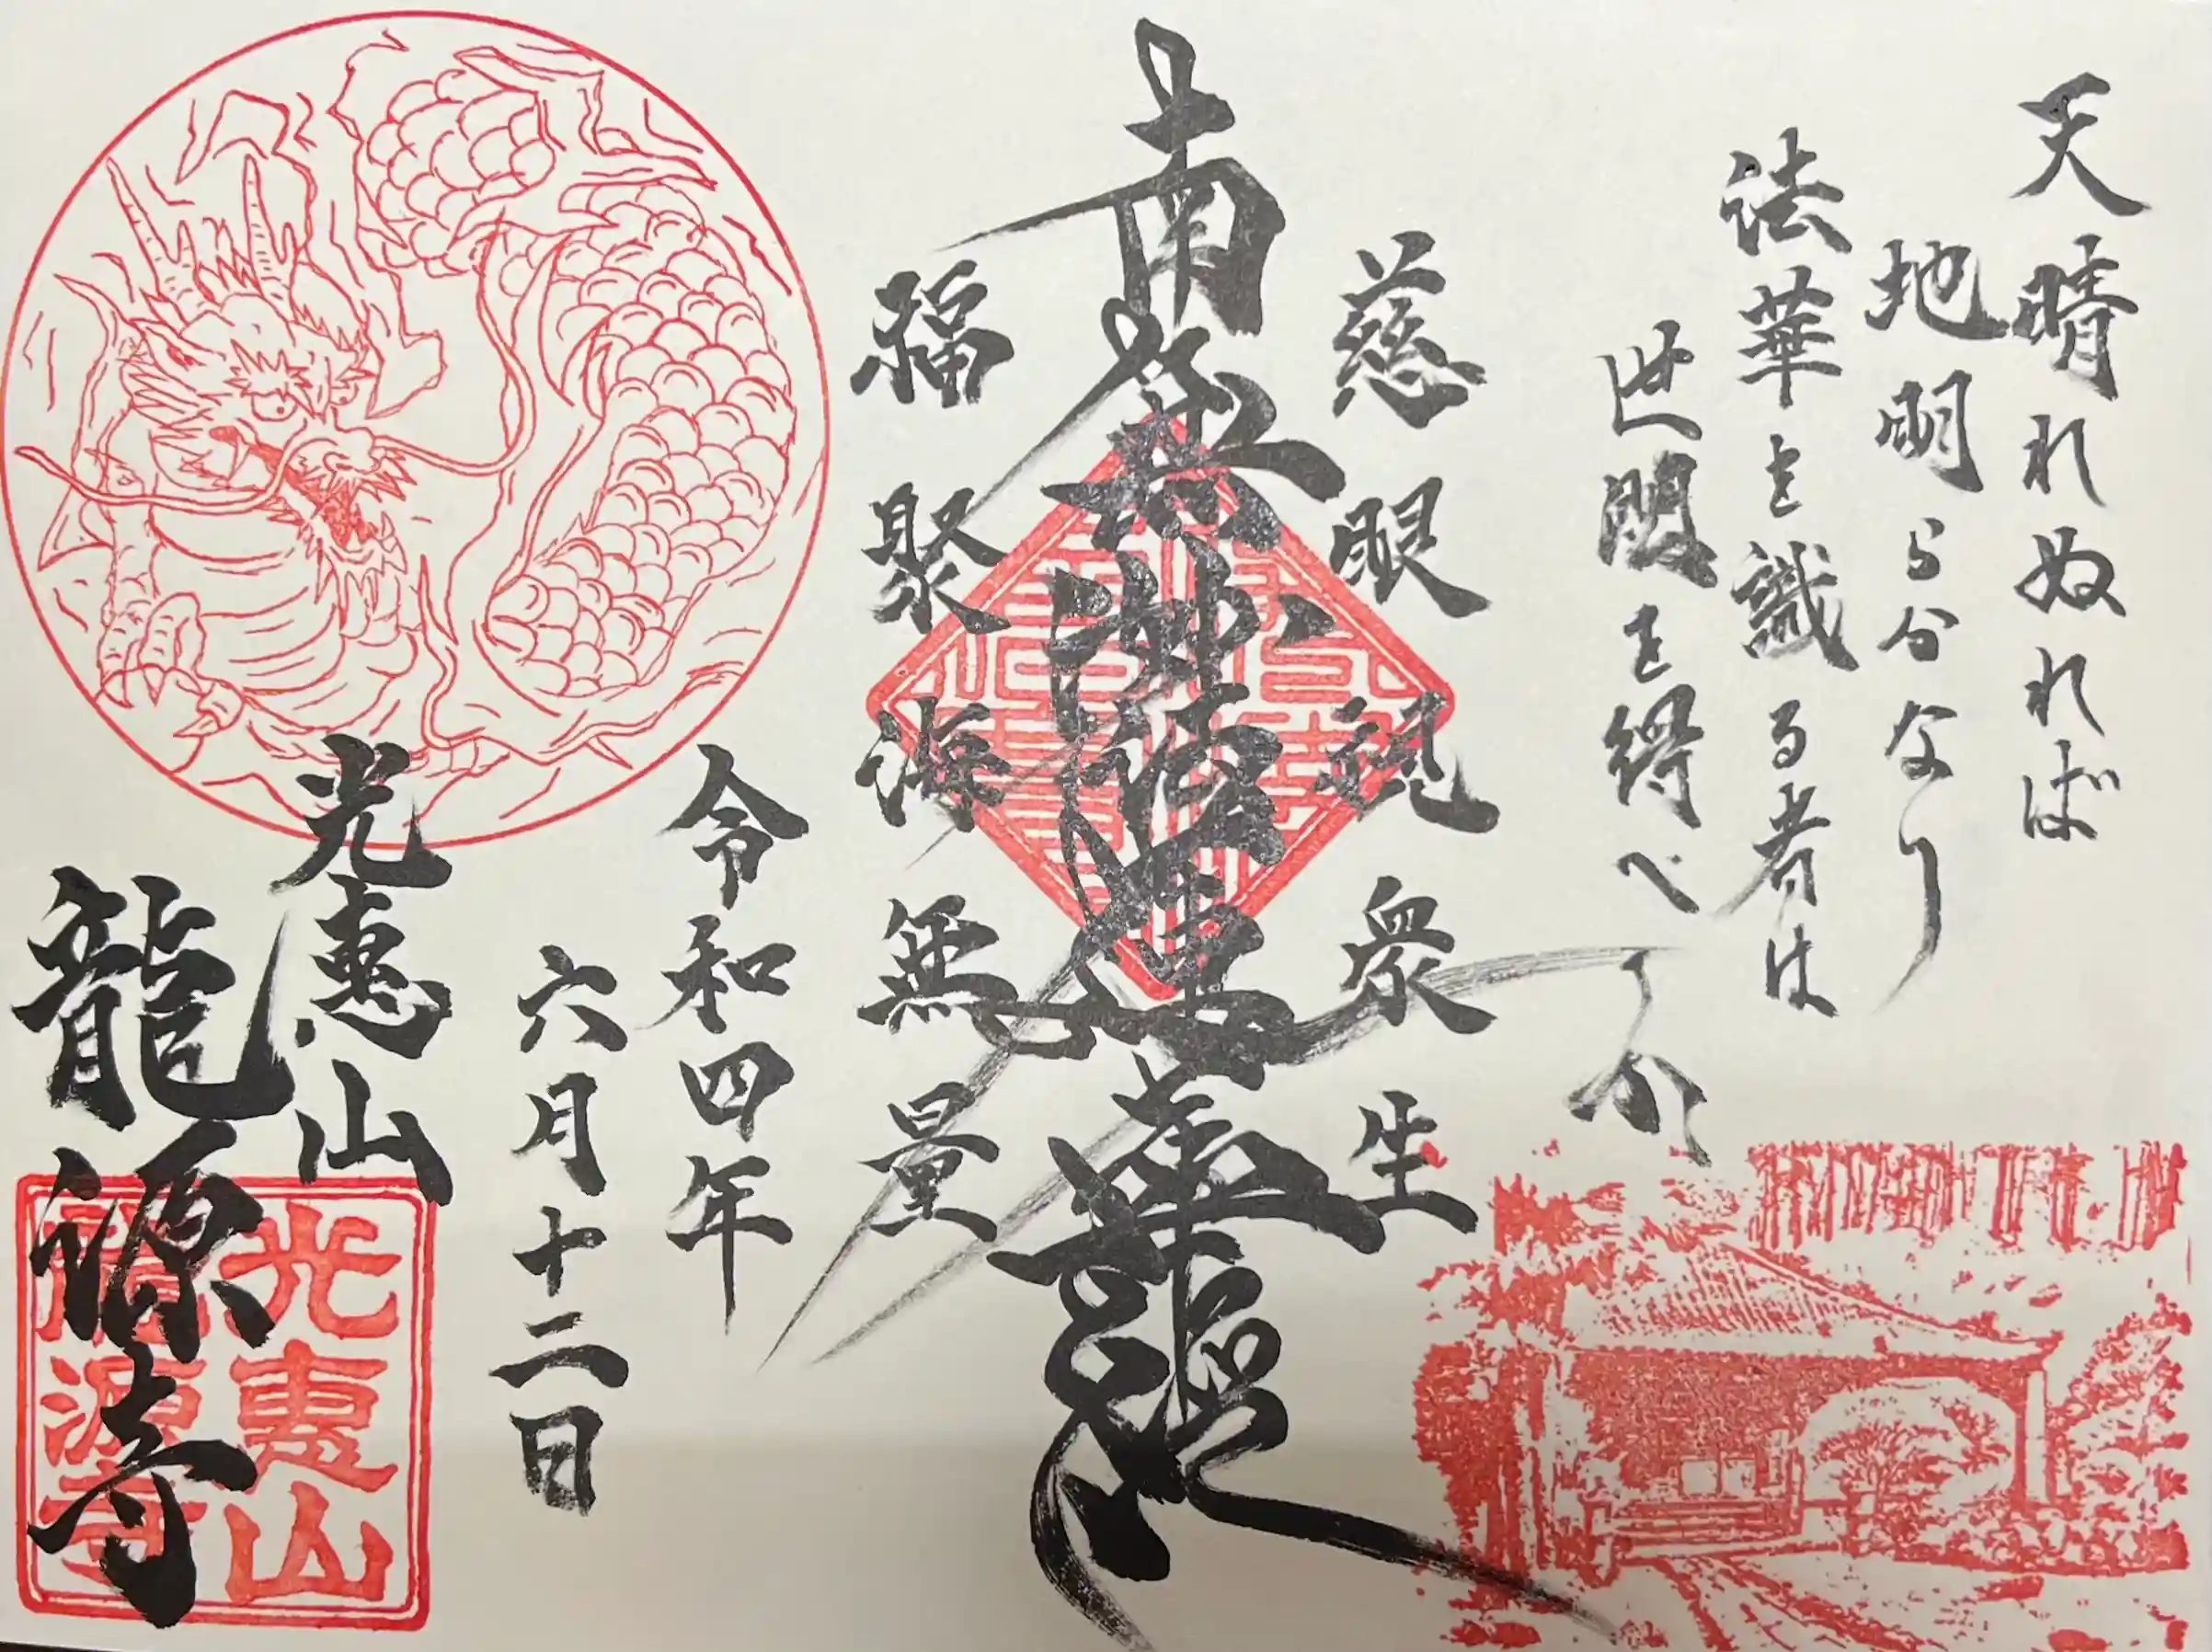 天晴れぬれば
地明らかなり
法華を識る者は
世間を得べ
きか
慈眼視衆生
南無妙法蓮華経
福聚海無量
令和四年
六月十二日
光惠山
龍源寺
光惠山
龍源寺